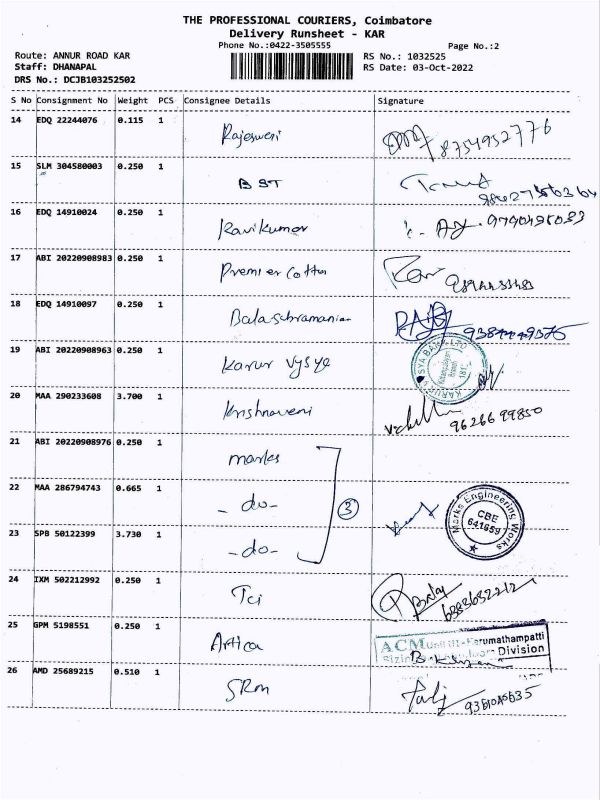 THE PROFESSIONAL COURIERS, Coimbatore
Delivery Runsheet - KAR
Phone No.:0422-3505555 Page No.:2
Route: ANNUR ROAD KAR RS No.: 1032525
Staff: DHANAPAL RS Date: 03-Oct-2022
DRS No.: DCJB103252502
S No Consignment No Weight PCS Consignee Details Signature
14 EDQ 22244076 0.115 1 Rajesweri 8754952776
15 SLM 304580003 0.250 1 BST
16 EDQ 14910024 0.250 1 Ravikumar 9790495083
17 ABI 20220908983 0.250 1 Premier Cotton
18 EDQ 14910097 0.250 1 Balasubramanian
19 ABI 20220908963 0.250 1 Karur Vysya
20 MAA 290233608 3.700 1 Krishnaveni 9626699850
21 ABI 20220908976 0.250 1 marks
22 MAA 286794743 0.665 1 -do- 3 Marks Engineering Works CBE 641659
23 SPB 50122399 3.730 1 -do-
24 IXM 502212992 0.250 1 Tci
25 GPM 5198551 0.250 1 Artica ACM Unit III-Karumathampatti
Division
26 AMD 25689215 0.510 1 SRM